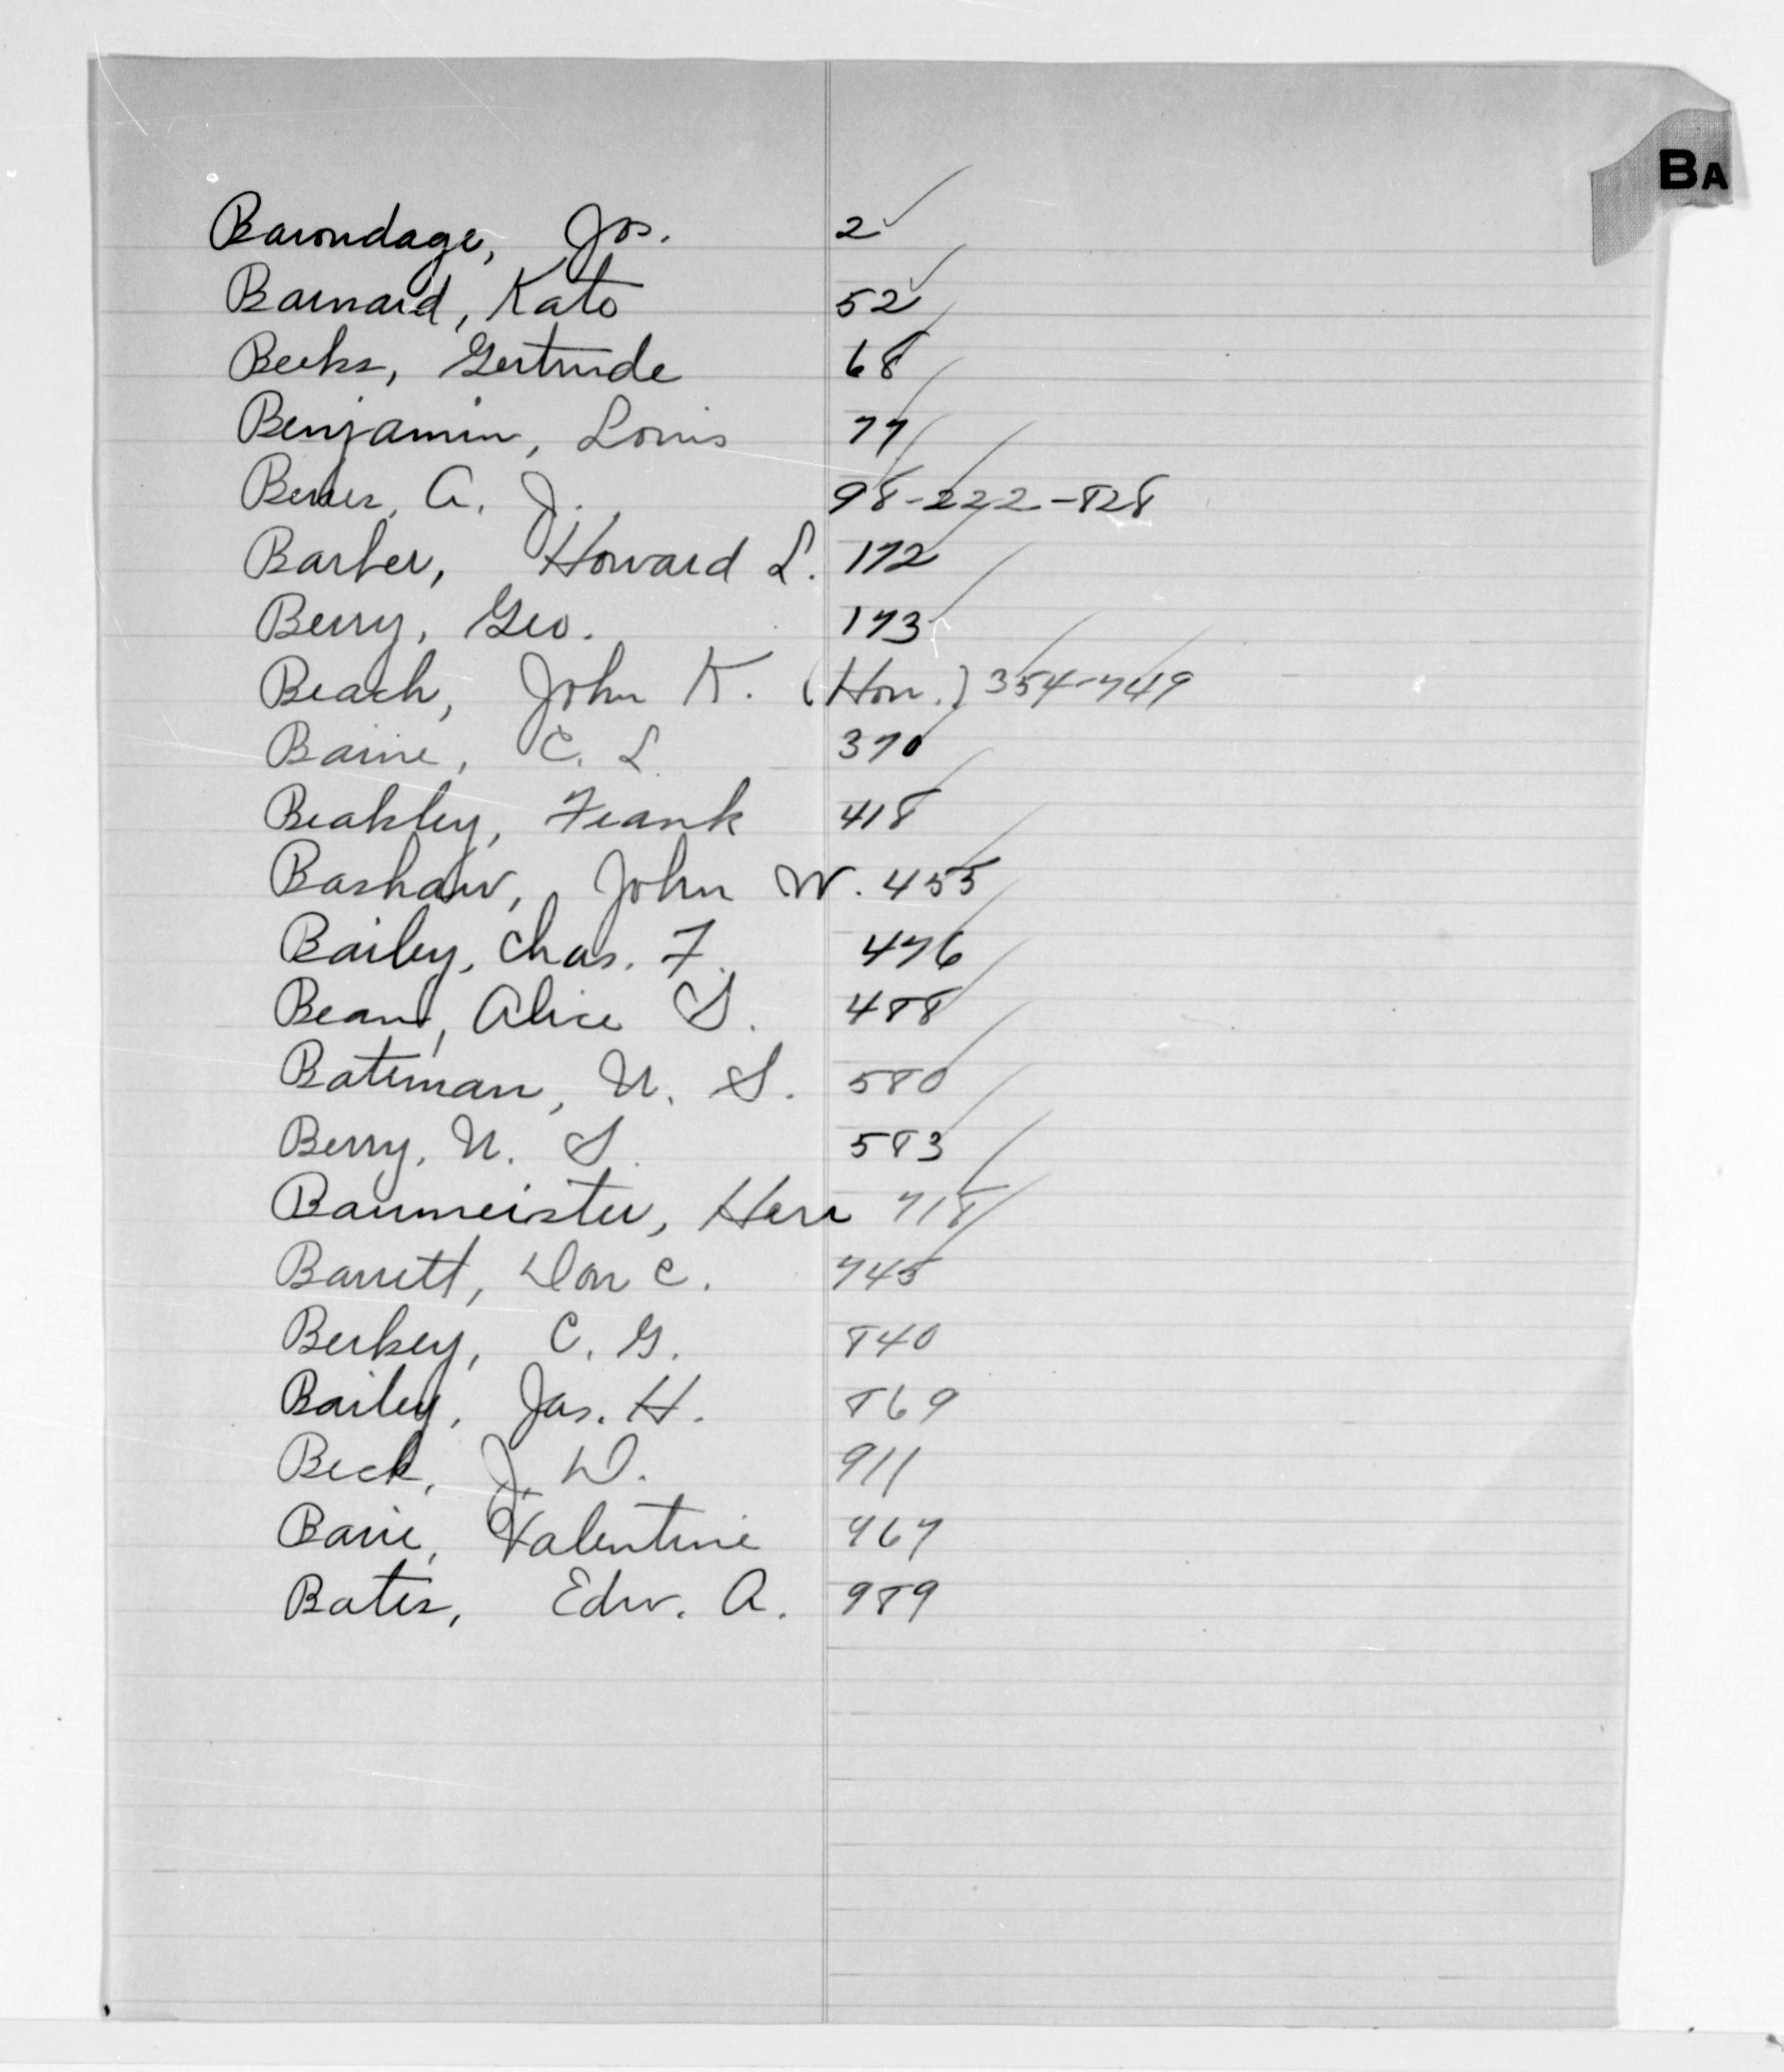 BA
Barondage, Jos. 2
Barnard, Kate 52
Beeks, Gertrude 68
Benjamin, Louis 77
Berres, A. J. 98-222-828
Barber, Howard L. 172
Berry, Geo. 173
Beach, John K. (Hon.) 354-749
Baine, C. L. 370
Beakley, Frank 418
Bashaw, John W. 455
Bailey, Chas. F. 476
Bean, Alice S. 488
Bateman, N. S. 580
Berry, N. S. 583
Baumeister, Herr 718
Barrett, Don C. 745
Berkey, C. G. 840
Bailey, Jas. H. 869
Beck, J. D. 911
Valentine 967
Bates, Edw. A. 989